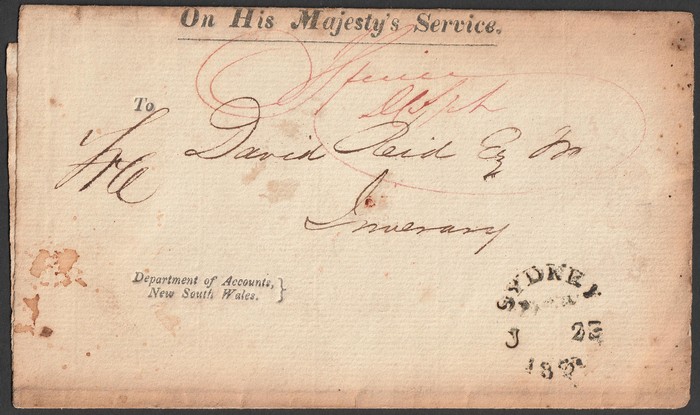 On His Majesty's Service.
To
David Reid Esq
Inverary
Department of Accounts,
New South Wales.
SYDNEY
J 23
18